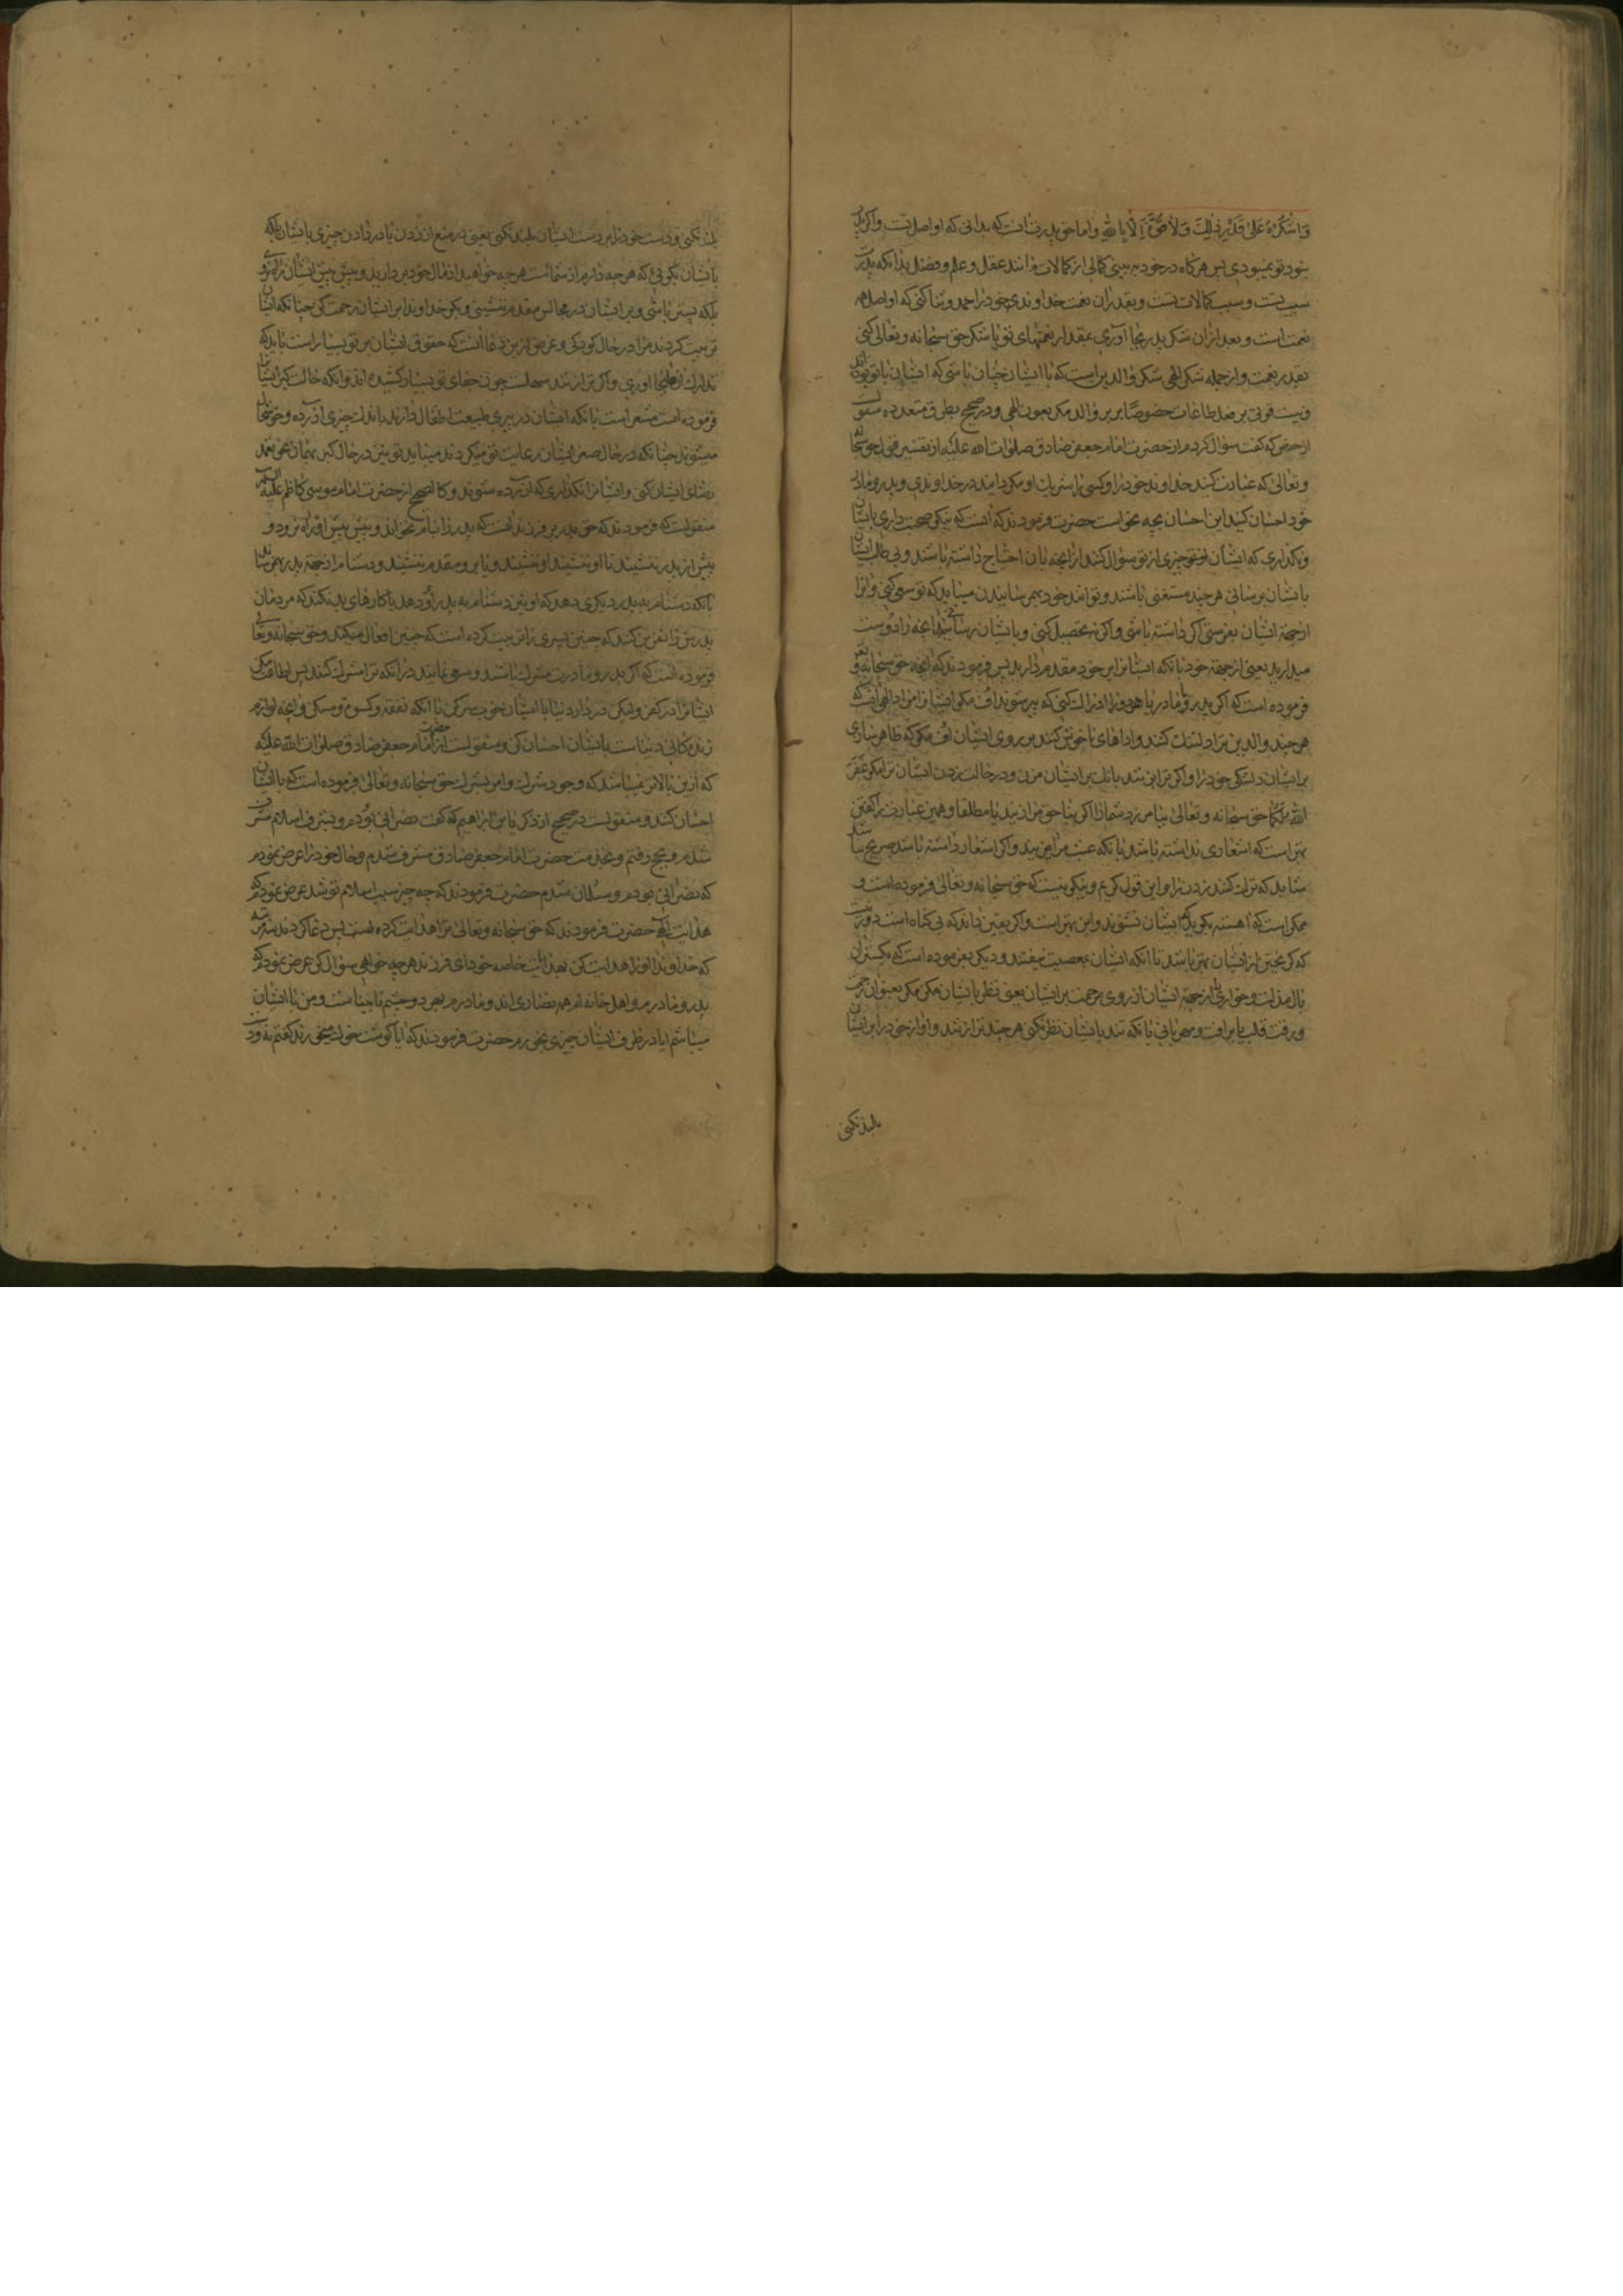 وَاشْكُرْهُ عَلىٰ قَدْرِ ذٰلِكَ وَلاٰ قُوَّةَ اِلّاٰ بِاللهِ واما حق پدرت انست که بدانی که او اصل تست واکر پدر
نبود تو نمیبودی پس هرکاه در خود ببینی کمالی از کمالات مانند عقل و علم و فضل بدانکه پدرت
سبب تست و سبب کمالات تست و بقدر آن نعمت خداوند خود را حمد و ثنا کنی که او اصل همه
نعمت است و بعد ازان شکر پدر بجا آوری بمقدار نعمتهای تو یا شکر حق سبحانه و تعالی کنی
بقدر نعمت و از جمله شکر الهی شکر والدین است که با ایشان چنان باشی که ایشان با تو بوده اند
و نیست قوتی بر فعل طاعات خصوصًا بر بر والد مکر بعون الهی و در صحیح بطرق متعدده منقولست
از حفص که کفت سؤال کردم از حضرت امام جعفر صادق صلوات الله علیه از تفسیر قول حق سبحانه
و تعالی که عبادت کنید خداوند خود را و کسی را شریک او مکردانید در خداوندی و بپدر و مادر
خود احسان کنید این احسان بچه نحو است حضرت فرمودند که آنست که نیکو صحبت داری با ایشان
و نکذاری که ایشان از تو چیزی از تو سؤال کنند از آنچه بآن احتیاج داشته باشند و بی طلب ایشان
بایشان برسانی هر چند مستغنی باشند و توانند خود بهم رسانیدن میباید که تو سعی کنی و آنرا
از جهة ایشان بفرستی اکر داشته باشی و اکر نه تحصیل کنی و بایشان رسانی آنچه را دوست
میدارید یعنی از جهة خود یا آنکه ایشانرا بر خود مقدم دارید پس فرمودند که آنچه حق سبحانه و تعالی
فرموده است که اکر پدر و مادر یا هر دو را ادراک کنی که پیر شوند اف مکو ایشانرا مراد الهی آنست که
هر چند والدین ترا دلتنک کنند و اداهای ناخوش کنند بر روی ایشان اف مکو که ظاهر سازی
بر ایشان دلتنکی خود را و اکر ترا بزنند بانک بر ایشان مزن و در حالت زدن ایشان ترا بکو غَفَرَ
اللهُ لَكُمٰا حق سبحانه و تعالی بیامرزد شما را اکر بنا حق مرا زنید یا مطلقا و همین عبارت را کفتن
بهتر است که اشعاری نداشته باشد بآنکه عبث مرا میزنید و اکر اشعار داشته باشد صریح نباشد
شاید که ترک کنند زدن ترا و این قول کریم و نیکوییست که حق سبحانه و تعالی فرموده است و
ممکن است که آهسته بکوید که ایشان نشنوند و این بهتر است و اکر یقین داند که بی کناه است دور نیست
که کریختن از ایشان بهتر باشد تا آنکه ایشان بمعصیت نیفتند و دیکر بفرموده است که بکستران
بال مذلت و خواری را از جهة ایشان از روی مرحمت بر ایشان یعنی نظر بایشان مکن مکر بعنوان مرحمت
و رقت قلب یا برافت و مهربانی یا آنکه تند بایشان نظر نکنی هر چند ترا زنند و آواز خود را بر ایشان
بلند نکنی
بلند نکنی و دست خود را بر دست ایشان بلند نکنی یعنی در منع از زدن یا در دادن چیزی بایشان بلکه
بایشان بکوئی که هر چه دارم از شماست هر چه خواهید از مال خود بردارید و پیش پیش ایشان راه نروی
بلکه پستر باشی و بر ایشان در مجالس مقدم ننشینی و بکو خداوندا بر ایشان رحمت کن چنانکه ایشان
تربیت کردند مرا در حال کودکی و غرض ازین دعا آنست که حقوق ایشان بر تو بسیار است باید که
تدارک آن بجا آوری و اکر ترا زنند سهلست چون جفای تو بسیار کشیده اند و آنکه حالت کبر ایشانرا
فرموده است مشعر است بآنکه ایشان در پیری طبیعت اطفال دارند باندک چیزی آزرده و خوشحال
میشوند چنانکه در حال صغر ایشان رعایت تو میکردند میباید تو نیز در حال کبر بهمان نحو تعهد
رضای ایشان کنی و ایشانرا نکذاری که آزرده شوند و کالصحیح از حضرت امام موسی کاظم علیه السلام
منقولست که فرمودند که حق پدر بر فرزند آنست که پدر را بنام نخواند و پیش پیش او راه نرود و
پیش از پدر ننشیند تا او ننشیند او ننشیند و یا برو مقدم ننشیند و دشنام از جهة پدر بهم نرساند
بآنکه دشنام به پدر دیکری دهد که او نیز دشنام به پدر او دهد یا کارهای بد نکند که مردمان
پدرش را نفرین کنند که چنین پسری را تربیت کرده است که چنین افعال میکند و حق سبحانه و تعالی
فرموده است که اکر پدر و مادرت مشرک باشند و سعی نمایند در آنکه ترا مشرک کنند پس اطاعت مکن
ایشانرا در کفر و لیکن در دار دنیا با ایشان خوب سر کن تا آنکه نفقه و کسوه و مسکن و آنچه لوازم
زندکانی دنیاست بایشان احسان کن و منقولست از حضرت امام جعفر صادق صلوات الله علیه
که ازین بالاتر نمیباشد که وجود شرک و امر بشرک حق سبحانه و تعالی فرموده است که با ایشان
احسان کنند و منقولست در صحیح از زکریا بن ابراهیم که کفت نصرانی بودم و بشرف اسلام مشرف
شدم و بحج رفتم و بخدمت حضرت امام جعفر صادق مشرف شدم و حال خود را عرض نمودم
که نصرانی بودم و مسلمان شدم حضرت فرمودند که چه چیز سبب اسلام تو شد عرض نمودم که
هدایت الهی حضرت فرمودند که حق سبحانه و تعالی ترا هدایت کرده است پس دعا کردند سه مرتبه
که خداوندا او را هدایت کن بهدایت خاصه خود ای فرزند هر چه خواهی سؤال کن عرض نمودم که
پدر و مادرم و اهل خانه ام همه نصاری اند و مادرم بهر دو چشم نابیناست و من با ایشان
میباشم آیا در ظرف ایشان چیزی بخورم حضرت فرمودند که آیا کوشت خوک میخورند کفتم نه و دست